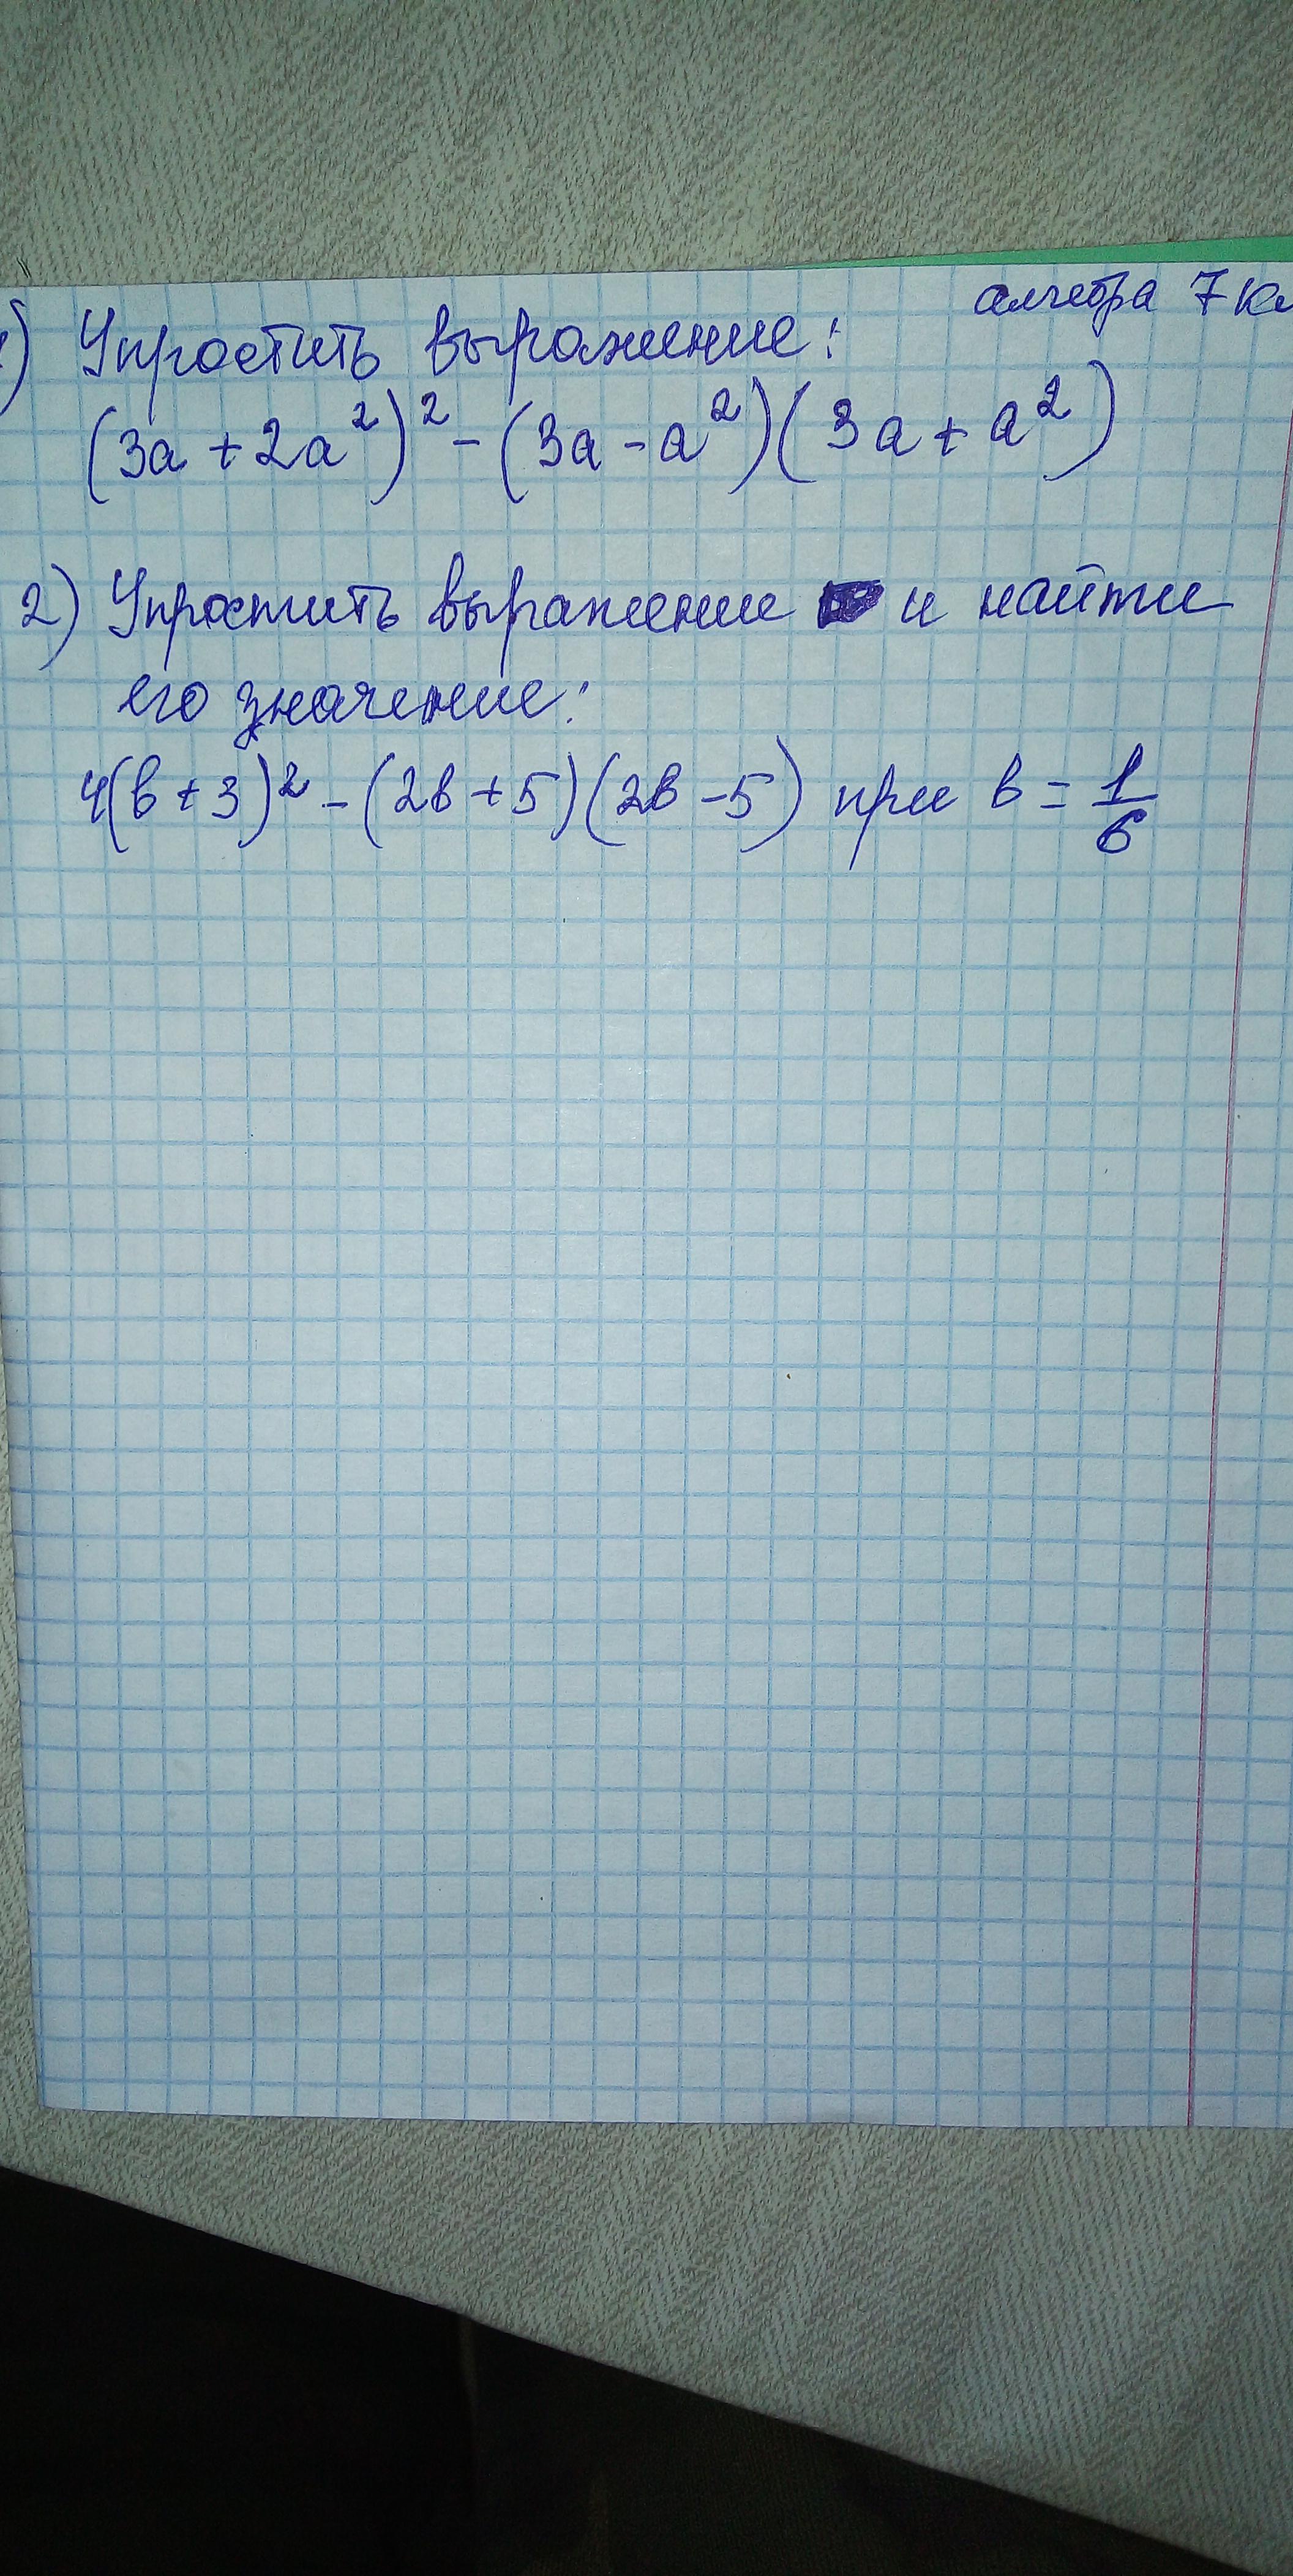 алгебра 7 кл
1) Упростить выражение:
(3a + 2a²)² - (3a - a²)(3a + a²)
2) Упростить выражение и найти
его значение:
4(b + 3)² - (2b + 5)(2b - 5) при b = 1/6